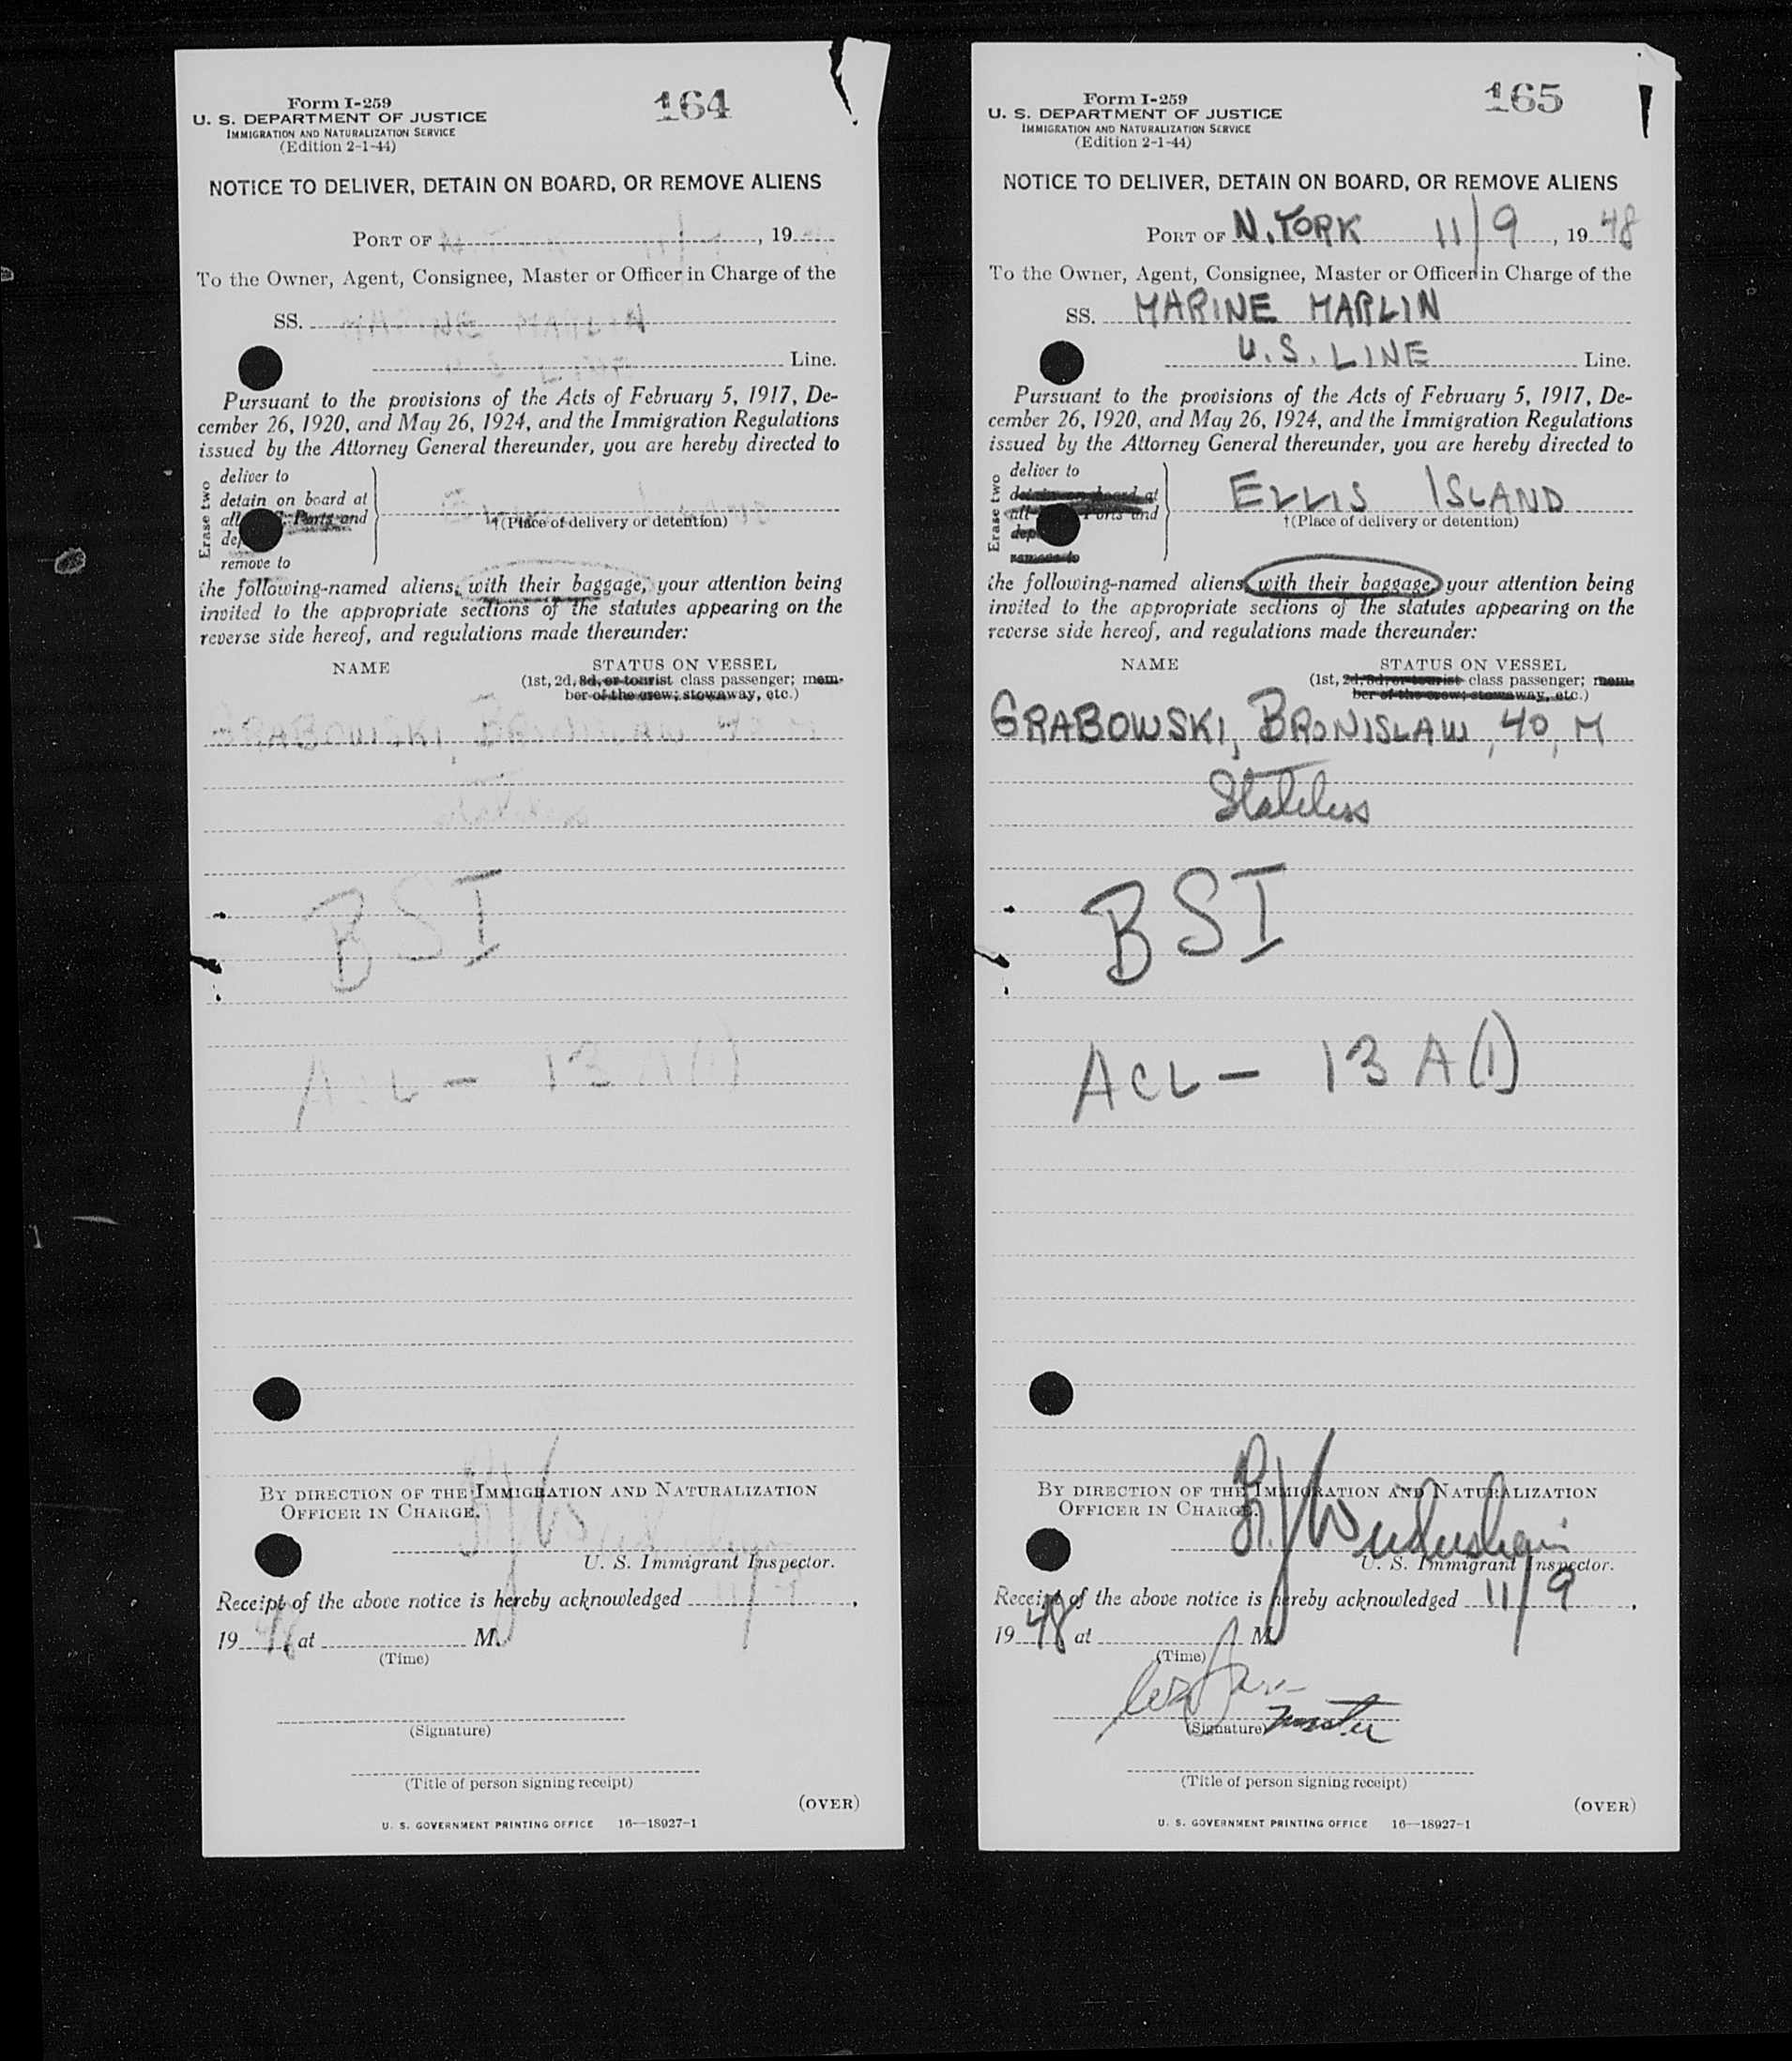 Form I-259
U. S. DEPARTMENT OF JUSTICE
IMMIGRATION AND NATURALIZATION SERVICE
(Edition 2-1-44)
164
NOTICE TO DELIVER, DETAIN ON BOARD, OR REMOVE ALIENS
PORT OF , 19
To the Owner, Agent, Consignee, Master or Officer in Charge of the
SS. MARINE MARLIN
Line.
Pursuant to the provisions of the Acts of February 5, 1917, De-
cember 26, 1920, and May 26, 1924, and the Immigration Regulations
issued by the Attorney General thereunder, you are hereby directed to
Erase two
deliver to
detain on board at
all Ports and
remove to
†(Place of delivery or detention)
the following-named aliens, with their baggage, your attention being
invited to the appropriate sections of the statutes appearing on the
reverse side hereof, and regulations made thereunder:
NAME
STATUS ON VESSEL
(1st, 2d, 3d, or tourist class passenger; mem-
ber of the crew; stowaway, etc.)
GRABOWSKI, BRONISLAW
Stateless
BSI
ACL - 13 A(1)
BY DIRECTION OF THE IMMIGRATION AND NATURALIZATION
OFFICER IN CHARGE.
U. S. Immigrant Inspector.
Receipt of the above notice is hereby acknowledged 11/9,
1948 at M.
(Time)
(Signature)
(Title of person signing receipt)
(OVER)
U. S. GOVERNMENT PRINTING OFFICE 16—18927-1
Form I-259
U. S. DEPARTMENT OF JUSTICE
IMMIGRATION AND NATURALIZATION SERVICE
(Edition 2-1-44)
165
NOTICE TO DELIVER, DETAIN ON BOARD, OR REMOVE ALIENS
PORT OF N. YORK 11/9, 1948
To the Owner, Agent, Consignee, Master or Officer in Charge of the
SS. MARINE MARLIN
U.S. LINE Line.
Pursuant to the provisions of the Acts of February 5, 1917, De-
cember 26, 1920, and May 26, 1924, and the Immigration Regulations
issued by the Attorney General thereunder, you are hereby directed to
Erase two
deliver to
detain on board at
all Ports and
remove to
ELLIS ISLAND
†(Place of delivery or detention)
the following-named aliens, with their baggage, your attention being
invited to the appropriate sections of the statutes appearing on the
reverse side hereof, and regulations made thereunder:
NAME
STATUS ON VESSEL
(1st, 2d, 3d, or tourist class passenger; mem-
ber of the crew; stowaway, etc.)
GRABOWSKI, BRONISLAW, 40, M
Stateless
BSI
ACL - 13 A(1)
BY DIRECTION OF THE IMMIGRATION AND NATURALIZATION
OFFICER IN CHARGE.
U. S. Immigrant Inspector.
Receipt of the above notice is hereby acknowledged 11/9,
1948 at M.
(Time)
(Signature) master
(Title of person signing receipt)
(OVER)
U. S. GOVERNMENT PRINTING OFFICE 16—18927-1